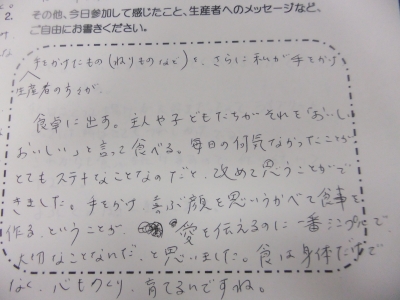 2. その他、今日参加して感じたこと、生産者へのメッセージなど、
ご自由にお書きください。
手をかけたもの(ねりものなど)を、さらに私が手をかけ
生産者の方々が
食卓に出す。主人や子どもたちがそれを「おいしい
おいしい」と言って食べる。毎日の何気なかったことが
とてもステキなことなのだと、改めて思うことがで
きました。手をかけ、喜ぶ顔を思いうかべて食事を
作る、ということが、愛を伝えるのに一番シンプルで
大切なことなんだ、と思いました。食は身体だけで
なく、心もつくり、育てるいですね。